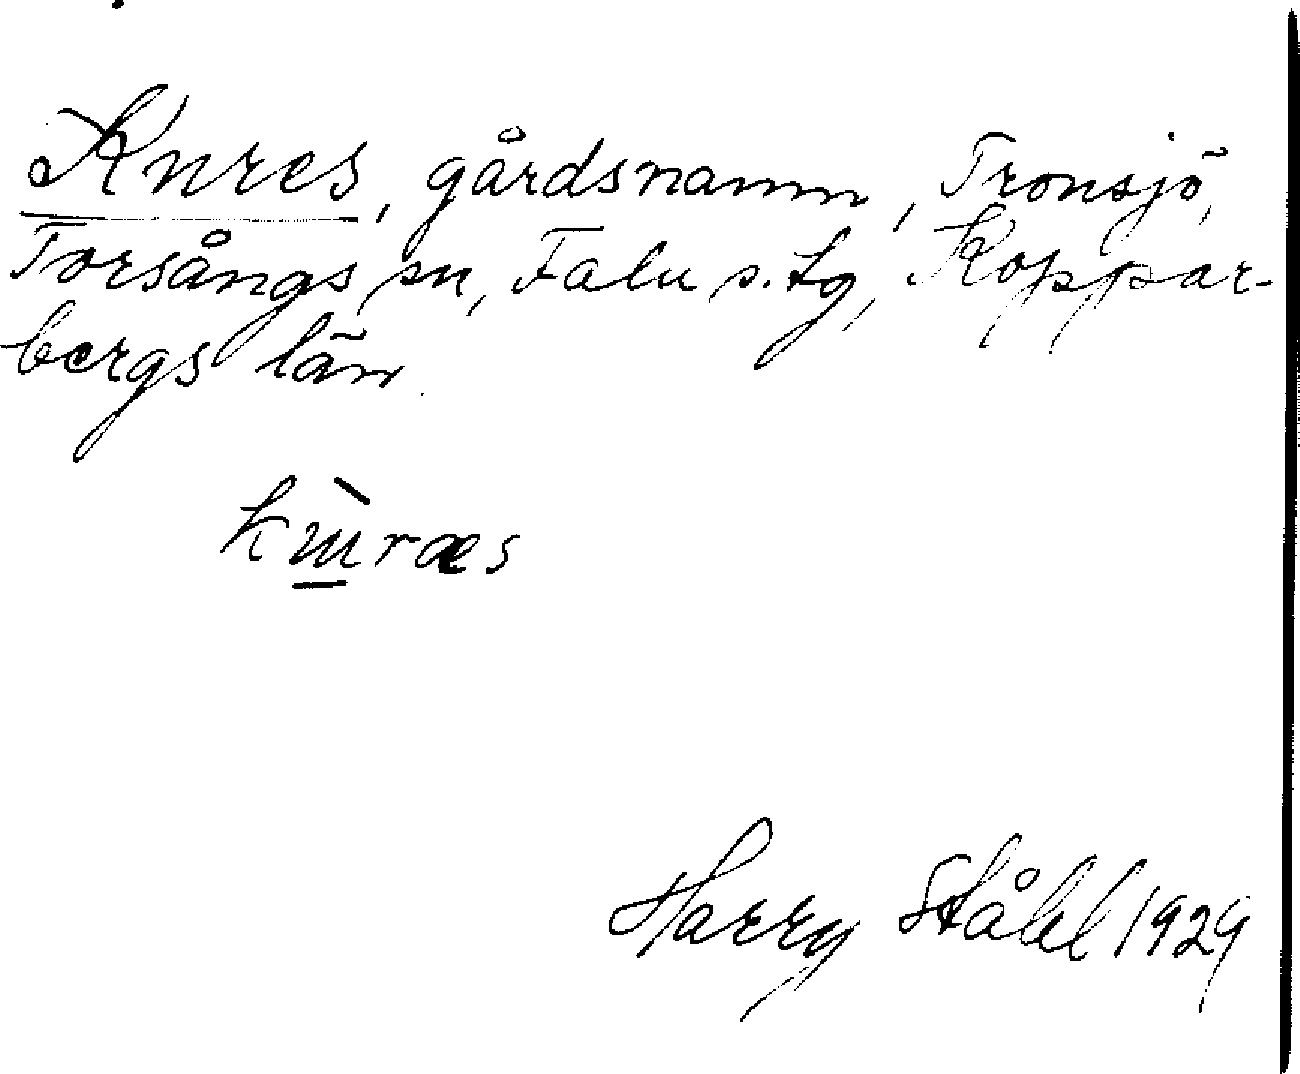 Kures, gårdsnamn, Tronsjö,
Torsångs sn, Falu s. tg, Koppar-
bergs län.
kɯ̱̀ræs
Harry Ståhl 1929